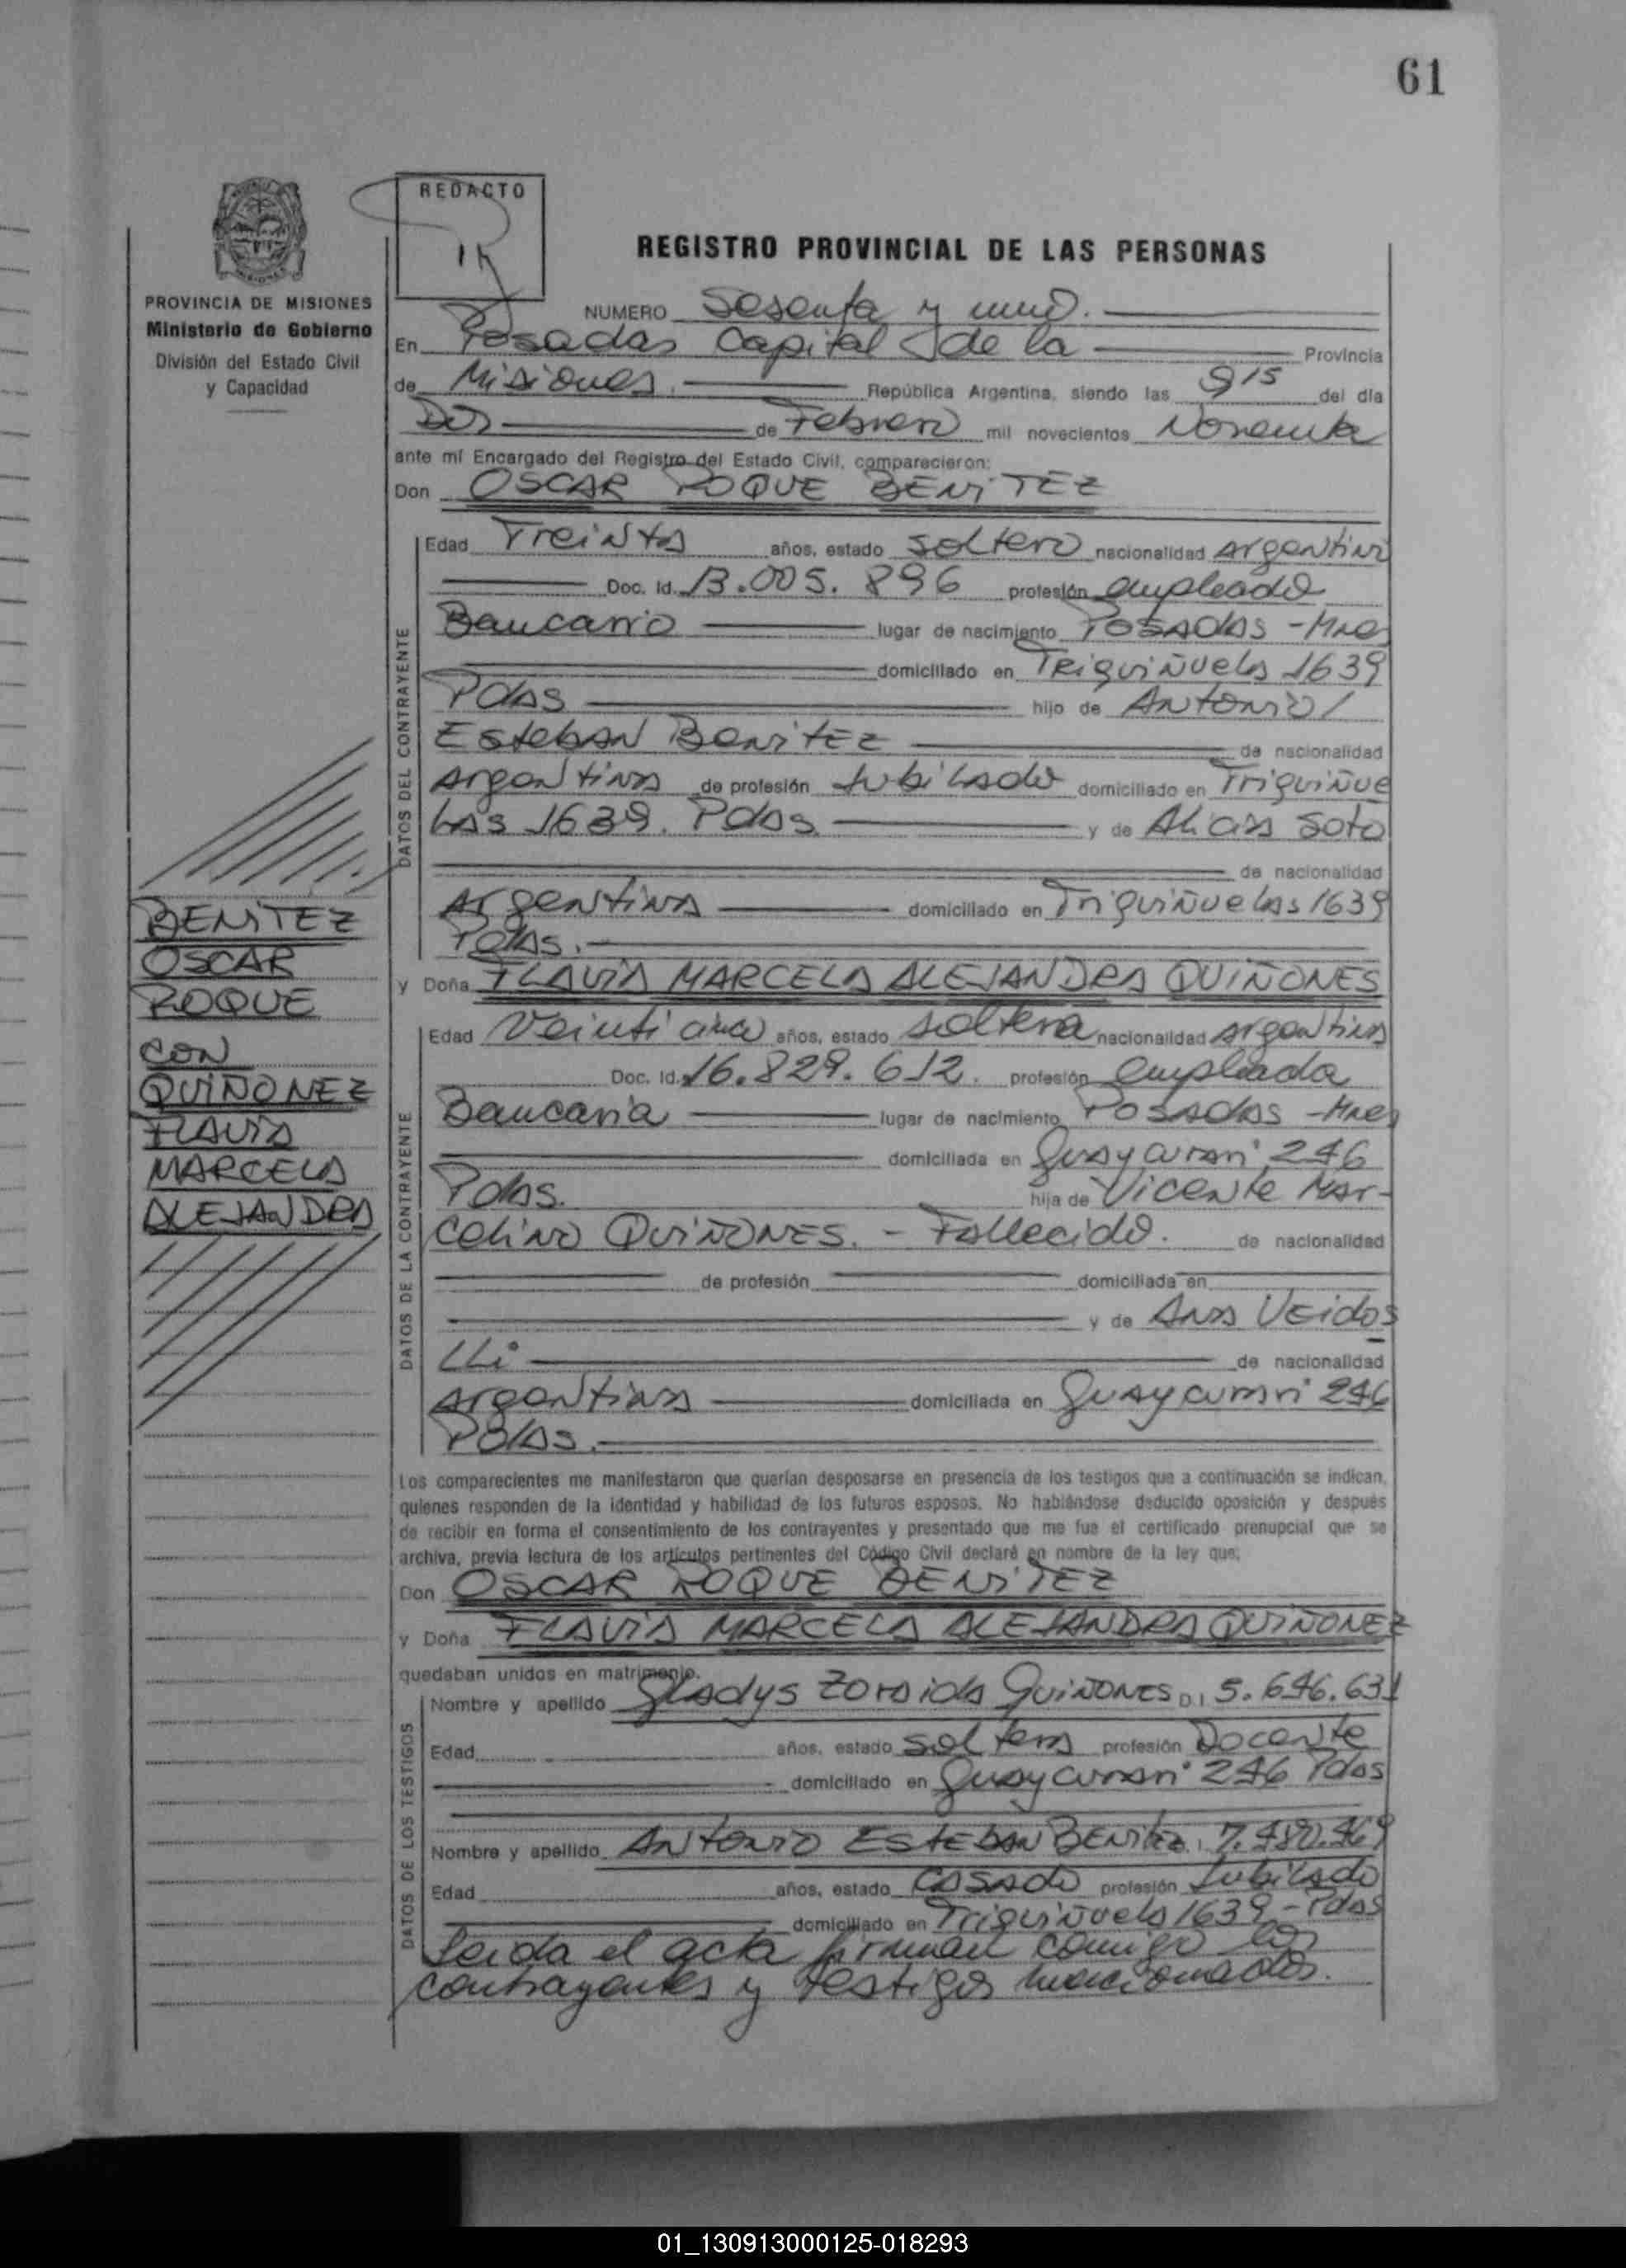 61
REDACTO
REGISTRO PROVINCIAL DE LAS PERSONAS
PROVINCIA DE MISIONES
Ministerio de Gobierno
División del Estado Civil
y Capacidad
NUMERO Sesenta y uno.
En Posadas Capital de la Provincia
de Misiones. República Argentina, siendo las 9 15 del día
Dos de Febrero mil novecientos Noventa
ante mí Encargado del Registro del Estado Civil, comparecieron:
Don OSCAR ROQUE BENITEZ
DATOS DEL CONTRAYENTE
Edad Treinta años, estado soltero nacionalidad Argentino
Doc. Id. 13.005.896 profesión empleado
Bancario lugar de nacimiento POSADAS - Mnes
domiciliado en Triquiñuelas 1639
Pdas hijo de Antonio
Esteban Benitez de nacionalidad
Argentina de profesión Jubilado domiciliado en Triquiñue
las 1639. Pdas y de Alicia Soto
de nacionalidad
Argentina domiciliado en Triquiñuelas 1639
Pdas.
BENITEZ
OSCAR
ROQUE
CON
QUIÑONEZ
FLAVIA
MARCELA
ALEJANDRA
y Doña FLAVIA MARCELA ALEJANDRA QUIÑONES
DATOS DE LA CONTRAYENTE
Edad Veinticinco años, estado soltera nacionalidad Argentina
Doc. Id. 16.829.612. profesión empleada
Bancaria lugar de nacimiento POSADAS - Mnes
domiciliada en Guaycurari 246
Pdas. hija de Vicente Mar-
celino QUIÑONES. - Fallecido. de nacionalidad
de profesión domiciliada en
y de Ana Veidos
lli de nacionalidad
Argentina domiciliada en Guaycurari 246
Pdas.
Los comparecientes me manifestaron que querían desposarse en presencia de los testigos que a continuación se indican,
quienes responden de la identidad y habilidad de los futuros esposos. No habiéndose deducido oposición y después
de recibir en forma el consentimiento de los contrayentes y presentado que me fue el certificado prenupcial que se
archiva, previa lectura de los artículos pertinentes del Código Civil declaré en nombre de la ley que:
Don OSCAR ROQUE BENITEZ
y Doña FLAVIA MARCELA ALEJANDRA QUIÑONEZ
quedaban unidos en matrimonio.
DATOS DE LOS TESTIGOS
Nombre y apellido Gladys Zoraida Quiñones D.I 5.646.631
Edad años, estado soltera profesión Docente
domiciliado en Guaycurari 246 Pdas
Nombre y apellido Antonio Esteban Benitez. 7.480.469
Edad años, estado casado profesión Jubilado
domiciliado en Triquiñuelas 1639 - Pdas
Leida el acta firman conmigo los
contrayentes y testigos mencionados.
01_130913000125-018293